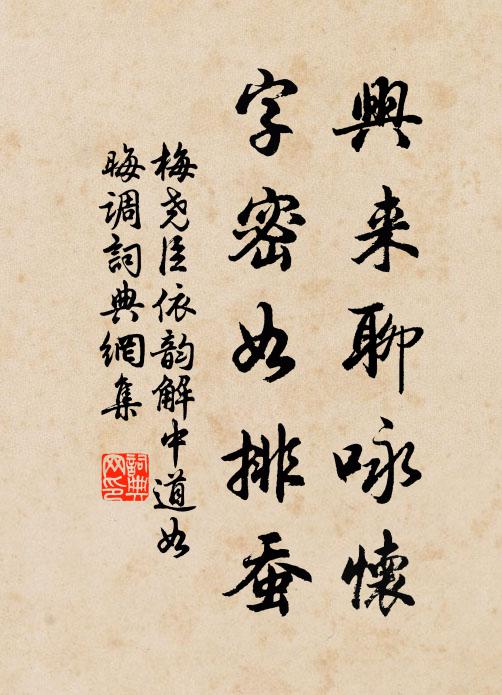 興来聊咏懷
字密如排蚕
梅尭臣依韵解中道如
晦调詞典網集
詞典网印